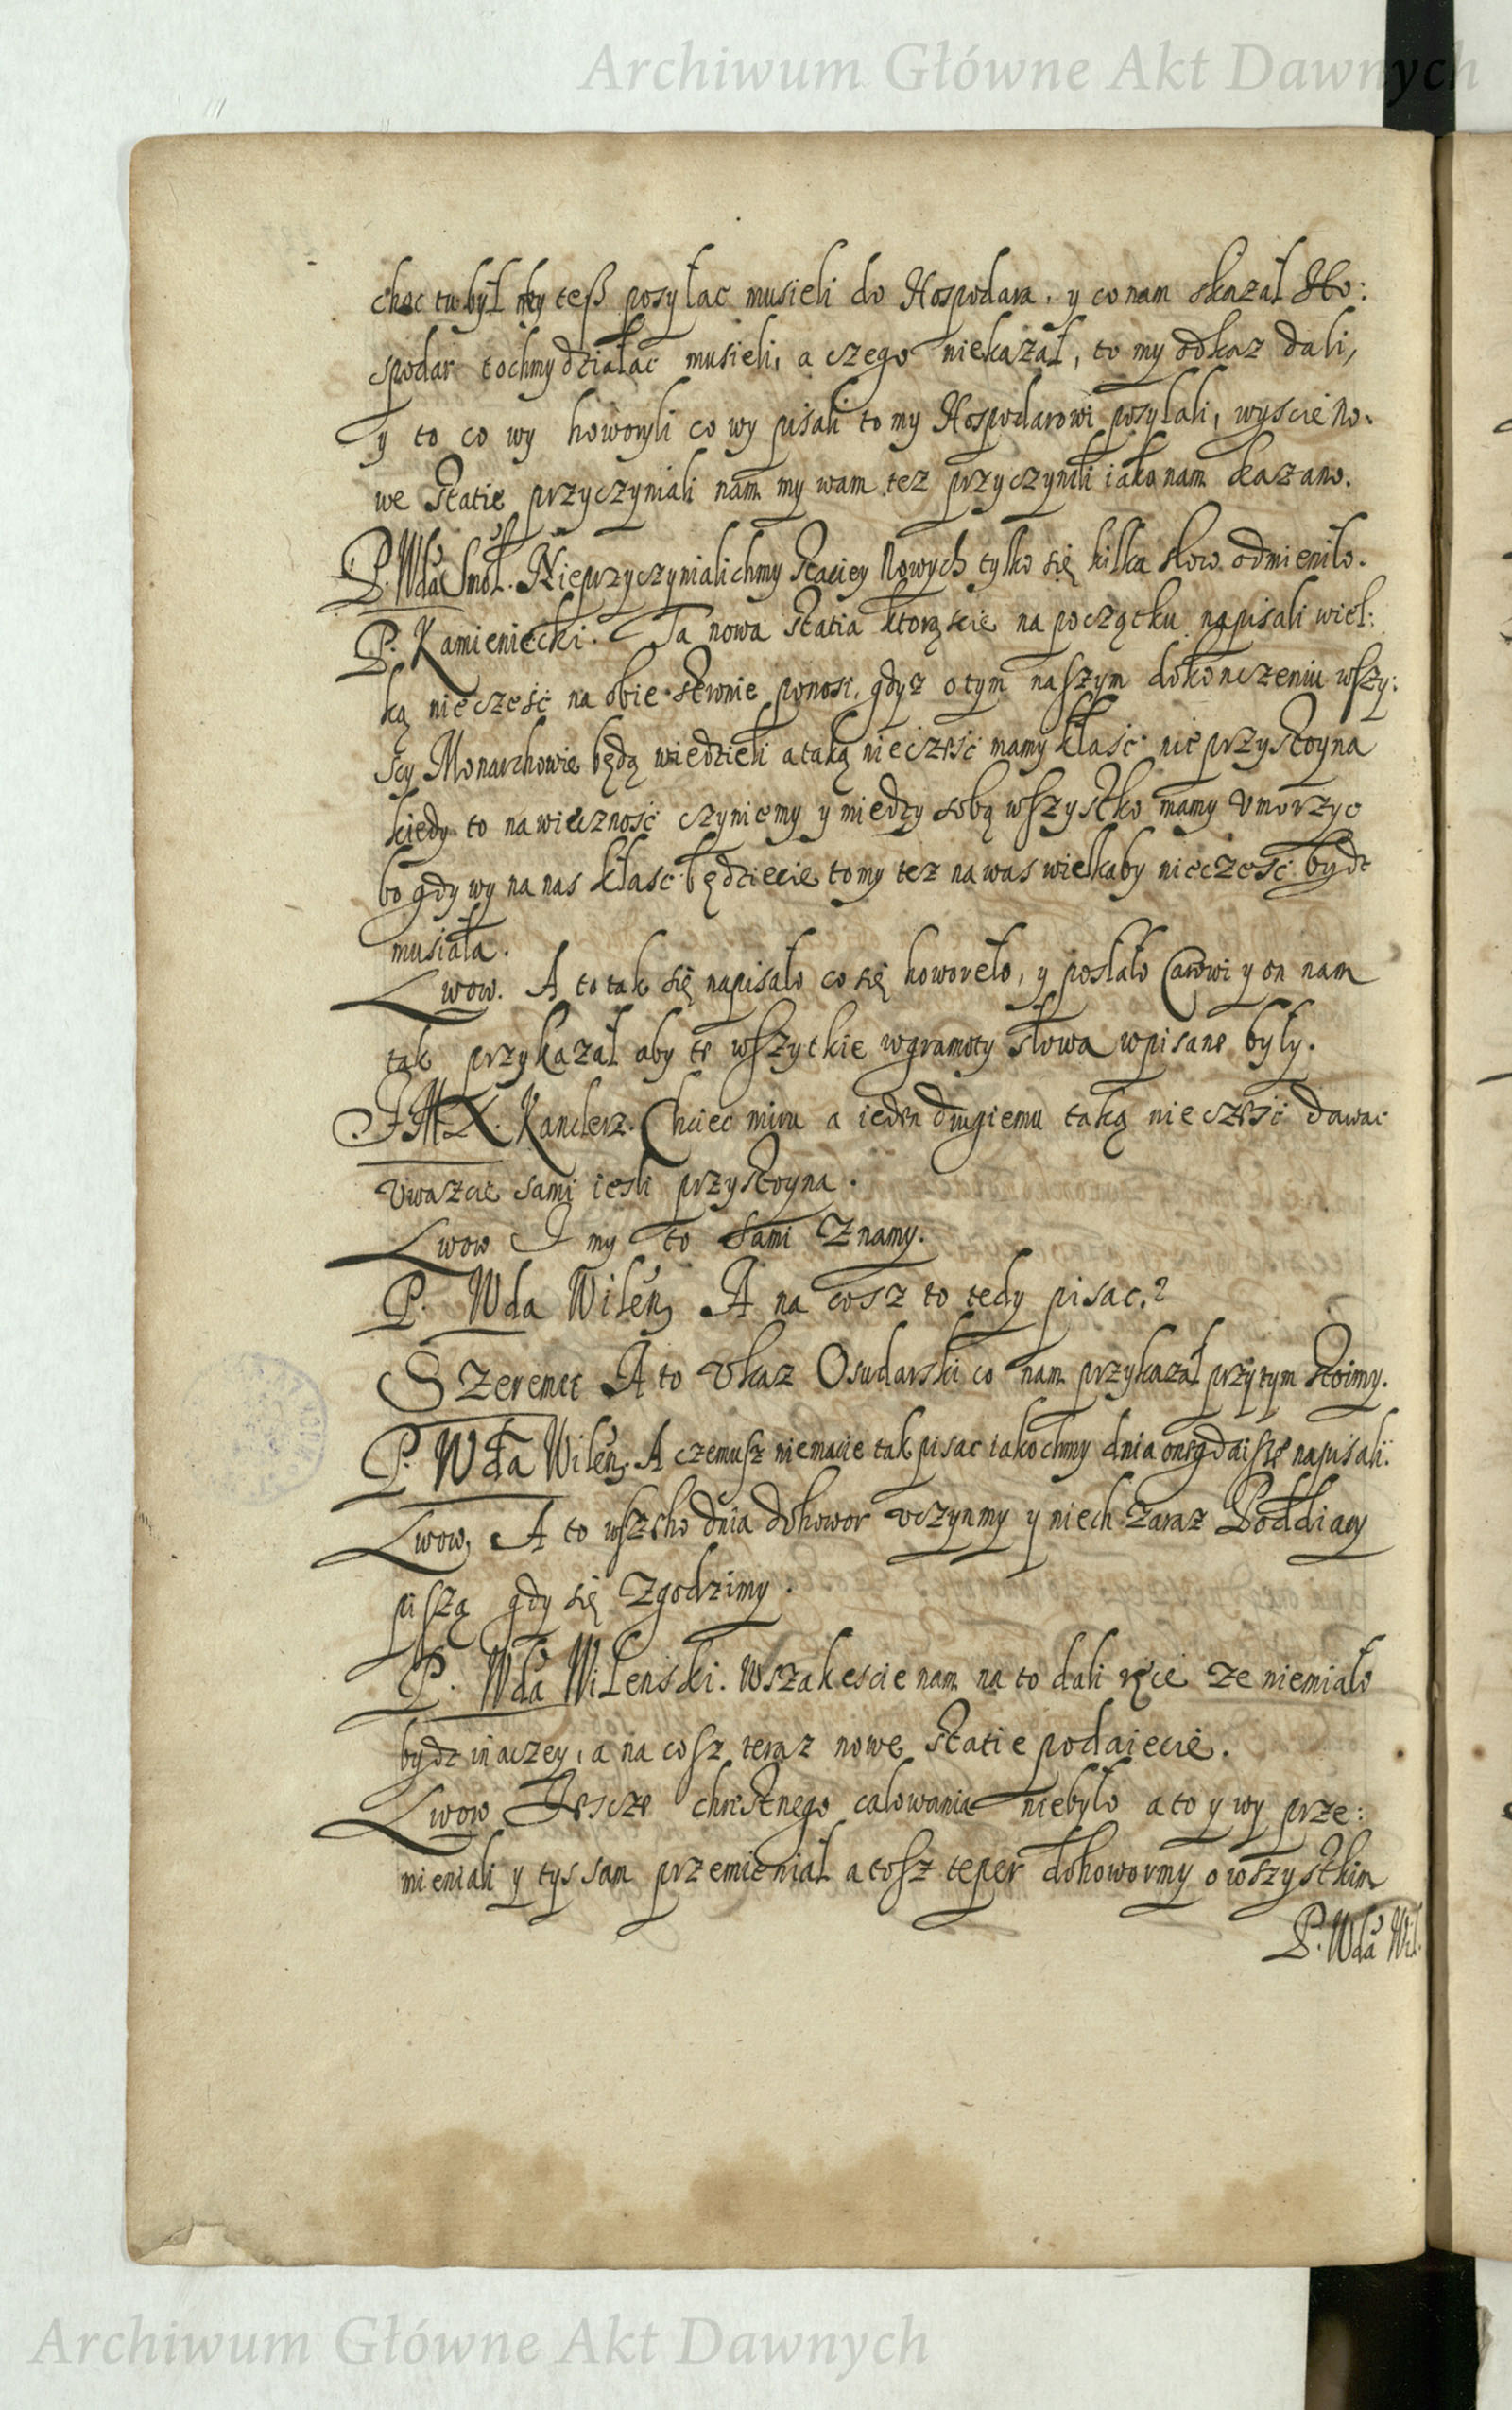 Archiwum Główne Akt Dawnych
choc tu był my teß posyłac musieli do Hospodara, y co nam skazał Ho:
spodar tochmy działac musieli, a czego niekazał, to my odkaz dali,
y to co wy howoryli co wy pisali to my Hospodarowi posyłali, wyscie No:
we Statie przyczyniali nam my wam tez przyczynili iako nam kazano.
P. Wda Smol. Nieprzyczynialichmy Staciey Nowych tylko się kilka słow odmieniło.
P. Kamieniecki. Ta nowa Statia ktorąscie na początku napisali wiel:
ką nieczesć na obie stronie ponosi, gdyz o tym naszym dokonczeniu wszy:
scy Monarchowie będą wiedzieli a taką nieczesć mamy kłasć nie przystoyna
kiedy to na wiecznosć czyniemy y miedzy sobą wszystko mamy Vmorzyc
bo gdy wy na nas kłasc będziecie to my tez na was wielkaby nieczesć bydz
musiała.
Lwow. A to tak się napisało co się howoreło, y posłało Carowi y on nam
tak przykazał aby te wszytkie w gramoty słowa wpisane były.
J M X. Kanclerz. Chciec miru a ieden drugiemu taką nieczesć dawac
Vwazcie sami iesli przystoyna.
Lwow I my to sami Znamy.
P. Wda Wilen, A na cosz to tedy pisac?
Szeremet A to Vkaz Osudarski co nam przykazał przy tym stoimy.
P. Wda Wilen. A czemusz niemacie tak pisac iakochmy dnia onegdaisze napisali.
Lwow, A to wszeho dnia dohowor vczynmy y niech zaraz Poddiacy
piszą gdy się Zgodzimy.
P. Wda Wilenski. Wszakescie nam na to dali ręce ze niemiało
bydz inaczey, a na cosz teraz nowe Statie podaiecie.
Lwow Jescze chrestnego całowania niebyło a to y wy prze:
mieniali y tys sam przemieniał a tosz teper dohowormy o wszystkim
P. Wda Wil.
Archiwum Główne Akt Dawnych